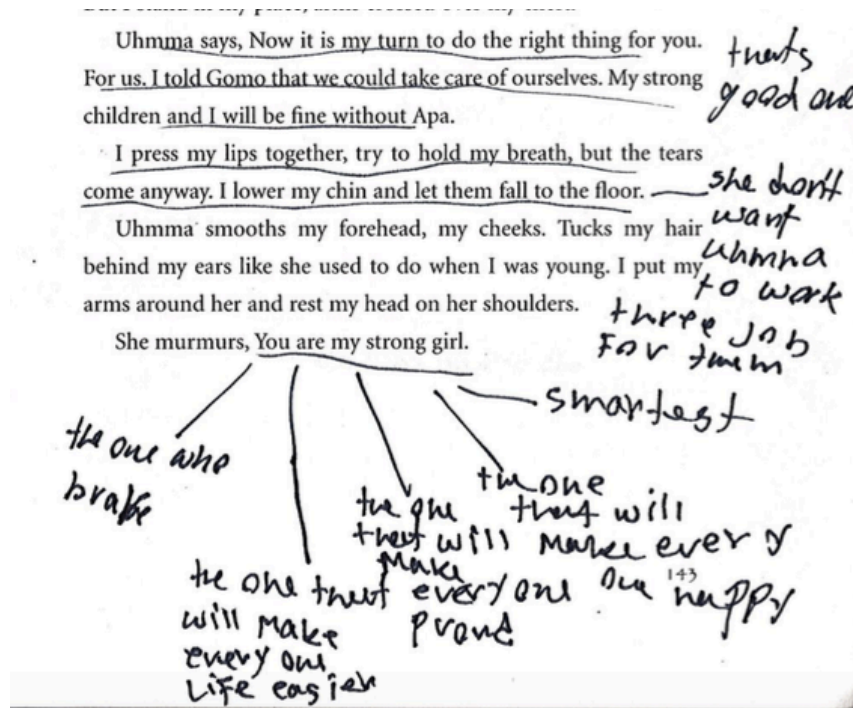 Uhmma says, Now it is my turn to do the right thing for you.
For us. I told Gomo that we could take care of ourselves. My strong
children and I will be fine without Apa.
I press my lips together, try to hold my breath, but the tears
come anyway. I lower my chin and let them fall to the floor.
Uhmma smooths my forehead, my cheeks. Tucks my hair
behind my ears like she used to do when I was young. I put my
arms around her and rest my head on her shoulders.
She murmurs, You are my strong girl.
thats
good one
she don't
want
uhmna
to work
three job
For them
smartest
the one who
brave
the one that
will make
every one
Life easier
the one
that will
make
everyone
proud
the one
that will
make every
one happy
143